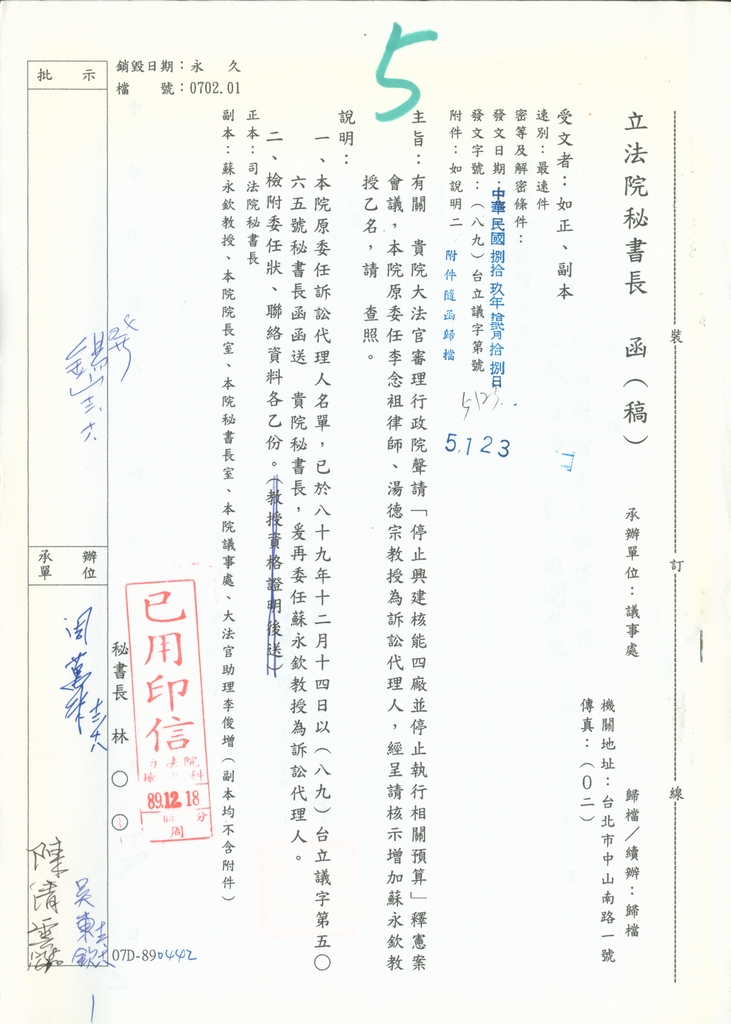 5
裝
訂
線
立法院秘書長　函（稿）
承辦單位：議事處
歸檔／續辦：歸檔
機關地址：台北市中山南路一號
傳真：（0二）
受文者：如正、副本
速別：最速件
密等及解密條件：
發文日期：中華民國捌拾玖年拾貳月拾捌日
發文字號：（八九）台立議字第號
5123
5,123
附件：如說明二
附件隨函歸檔
主旨：有關　貴院大法官審理行政院聲請「停止興建核能四廠並停止執行相關預算」釋憲案
會議，本院原委任李念祖律師、湯德宗教授為訴訟代理人，經呈請核示增加蘇永欽教
授乙名，請　查照。
說明：
一、本院原委任訴訟代理人名單，已於八十九年十二月十四日以（八九）台立議字第五〇
六五號秘書長函函送　貴院秘書長，爰再委任蘇永欽教授為訴訟代理人。
二、檢附委任狀、聯絡資料各乙份。（教授資格證明後送）
正本：司法院秘書長
副本：蘇永欽教授、本院院長室、本院秘書長室、本院議事處、大法官助理李俊增（副本均不含附件）
銷毀日期：永　久
檔　　號：0702.01
秘書長　林　〇　〇
已用印信
89.12.18
周
批　示
承辦
單位
周萬來
吳東欽
陳清雲
07D-890442